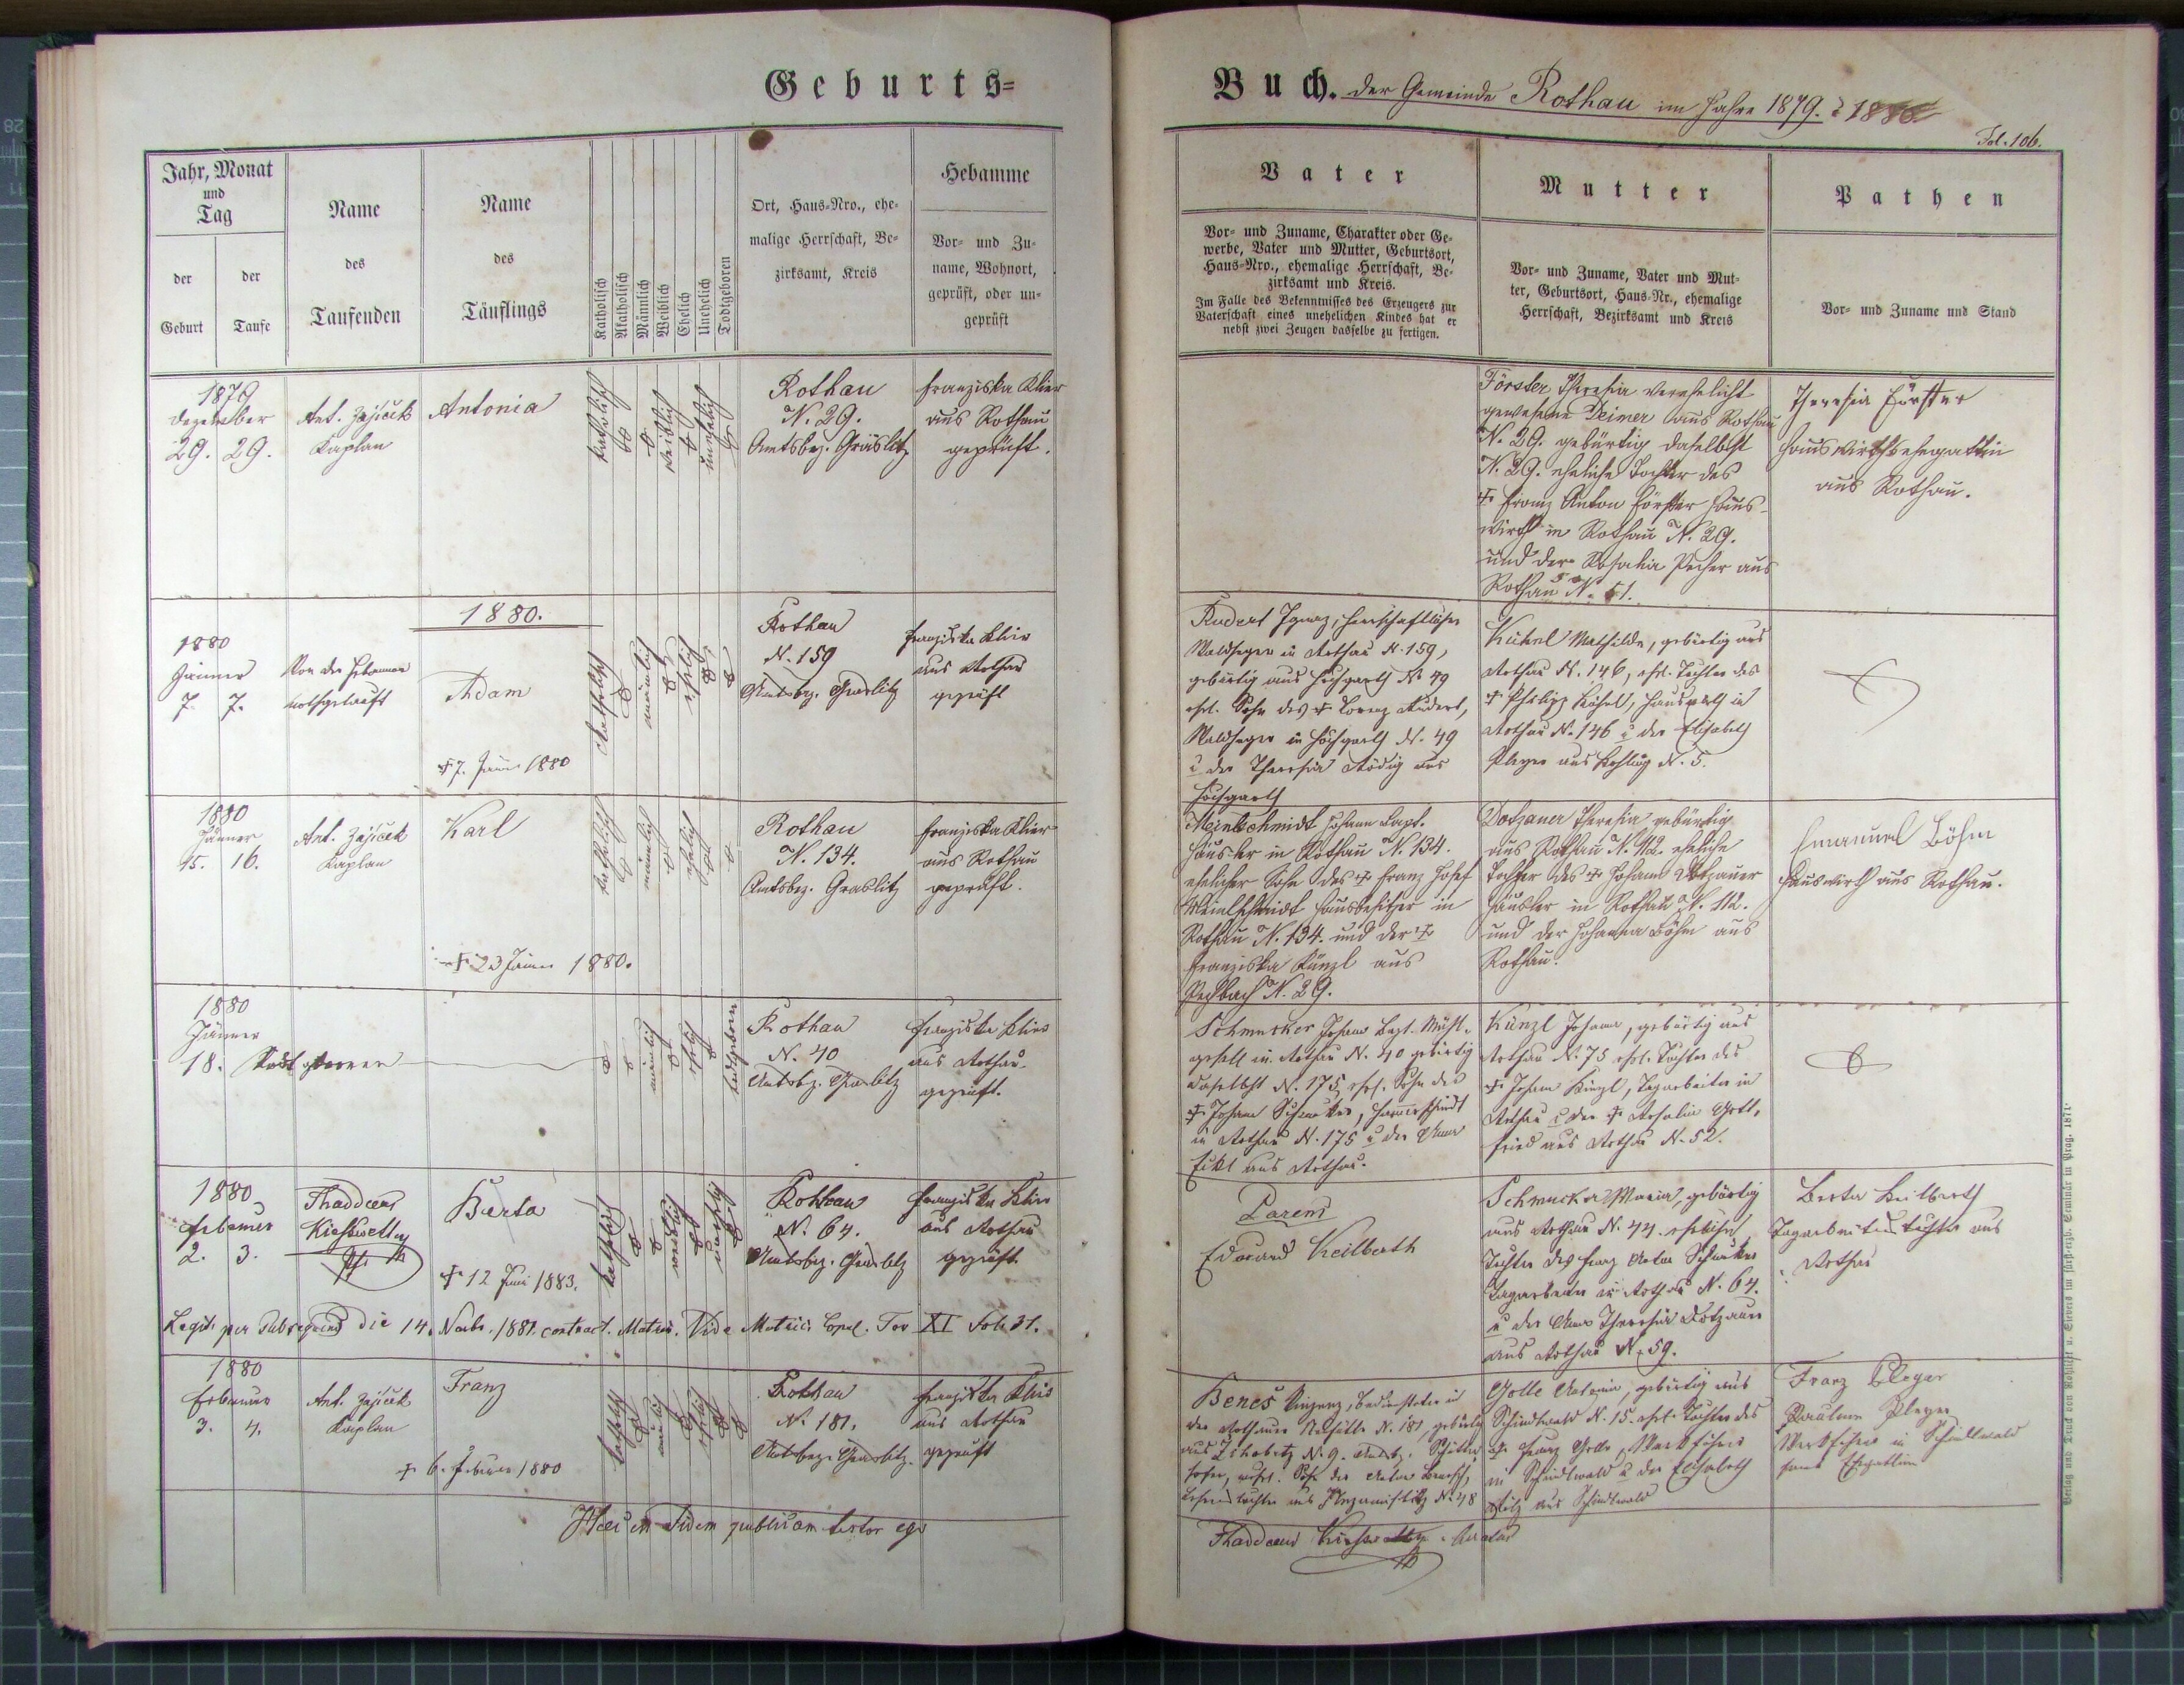 Geburts=
Buch. der Gemeinde Rothau im Jahre 1879. & 1880
Fol. 106.
Jahr, Monat
und
Tag
der
Geburt
der
Taufe
Name
des
Taufenden
Name
des
Täuflings
Katholisch
Akatholisch
Männlich
Weiblich
Ehelich
Unehelich
Todtgeboren
Ort, Haus=Nro., ehe=
malige Herrschaft, Be=
zirksamt, Kreis
Hebamme
Vor= und Zu=
name, Wohnort,
geprüft, oder un=
geprüft
Vater
Vor= und Zuname, Charakter oder Ge=
werbe, Vater und Mutter, Geburtsort,
Haus=Nro., ehemalige Herrschaft, Be=
zirksamt und Kreis.
Im Falle des Bekenntnisses des Erzeugers zur
Vaterschaft eines unehelichen Kindes hat er
nebst zwei Zeugen dasselbe zu fertigen.
Mutter
Vor= und Zuname, Vater und Mut=
ter, Geburtsort, Haus=Nr., ehemalige
Herrschaft, Bezirksamt und Kreis
Pathen
Vor= und Zuname und Stand
1879
Dezember
29. 29.
Ant. Zajíček
Kaplan
Antonia
katholisch
weiblich
unehelich
Rothau
N. 29.
Amtsbez. Graslitz
Franziska Klier
aus Rothau
geprüft.
Förster Theresia verehelicht
gewesene Deimer aus Rothau
N. 29. gebürtig daselbst
N. 29. eheliche Tochter des
† Franz Anton Förster Haus-
wirth in Rothau N. 29.
und der Rosalia Pecher aus
Rothau N. 51.
Theresia Förster
Hauswirthsehegattin
aus Rothau.
1880.
1880
Jänner
7. 7.
Von der Hebamme
nothgetauft
Adam
† 7. Jänner 1880
katholisch
männlich
ehelich
Rothau
N. 159
Amtsbez. Graslitz
Franziska Klier
aus Rothau
geprüft
Rudert Ignaz, herrschaftlicher
Waldheger in Rothau N. 159,
gebürtig aus Hochgarth N. 49
ehel. Sohn des † Lorenz Rudert,
Waldheger in Hochgarth N. 49
u. der Theresia Rödig aus
Hochgarth
Kühnl Mathilde, gebürtig aus
Rothau N. 146, ehel. Tochter des
† Philipp Kühnl, Hauswirth in
Rothau N. 146 u. der Elisabeth
Pleyer aus Kohling N. 5.
1880
Jänner
15. 16.
Ant. Zajíček
Kaplan
Karl
† 23 Jänner 1880.
katholisch
männlich
ehelich
Rothau
N. 134.
Amtsbez. Graslitz
Franziska Klier
aus Rothau
geprüft.
Meinlschmidt Johann Bapt.
Häusler in Rothau N. 134.
ehelicher Sohn des † Franz Josef
Meinlschmidt Hausbesitzer in
Rothau N. 134. und der †
Franziska Künzl aus
Pechbach N. 29.
Dotzauer Theresia gebürtig
aus Rothau N. 112. eheliche
Tochter des † Johann Dotzauer
Häusler in Rothau N. 112.
und der Johanna Böhm aus
Rothau.
Emanuel Böhm
Hauswirth aus Rothau.
1880
Jänner
18. Todtgeboren
männlich
ehelich
todtgeboren
Rothau
N. 40
Amtsbz. Graslitz
Franziska Klier
aus Rothau
geprüft.
Schmucker Johann Bapt.
in Rothau N. 40 gebürtig
daselbst N. 175, ehel. Sohn des
† Johann Schmucker, Hammerschmidt
in Rothau N. 175 u. der Anna
aus Rothau.
Künzl Johanna, gebürtig aus
Rothau N. 75 ehel. Tochter des
† Johann Künzl, Tagarbeiter in
Rothau u. der † Rosalia Gott-
fried aus Rothau N. 52.
1880
Februar
2. 3.
Thaddaeus
Kieswetter
Berta
† 12 Juni 1883.
katholisch
weiblich
unehelich
Rothau
N. 64.
Amtsbez. Graslitz
Franziska Klier
aus Rothau
geprüft.
Parens
Edouard Keilberth
Schmucker Maria, gebürtig
aus Rothau N. 44. eheliche
Tochter des Franz Anton Schmucker
Tagarbeiter in Rothau N. 64.
u. der Anna Theresia Dotzauer
aus Rothau N. 59.
Berta Keilberth
Tagarbeiterstochter aus
Rothau
Legit. per subsequens die 14. Novbr. 1881. contract. Matrim. Vide Matric. Copul. Tom XI Fol. 31.
1880
Februar
3. 4.
Ant. Zajíček
Kaplan
Franz
† 6. Februar 1880
katholisch
männlich
ehelich
Rothau
N. 181.
Amtsbez. Graslitz.
Franziska Klier
aus Rothau
geprüft
Benes Vinzenz, Bediensteter in
der Rothauer N. 181, gebürtig
aus N. 9. Amtsbz. Schütten-
hofen, unehel. Sohn der
aus N. 48
Golle Antonia, gebürtig aus
Schindlwald N. 15. ehel. Tochter des
† Franz Golle, Werkführer
in Schindlwald u. der Elisabeth
aus Schindlwald
Franz Pleyer
Pauline Pleyer
Werkführer in Schindlwald
sammt Ehegattin
Haec in fidem publicam testor ego
Thaddaeus Kieswetter. Curatus
Verlag und Druck von Rohliček u. Sievers im fürst-erzb. Seminär in Prag. 1871.